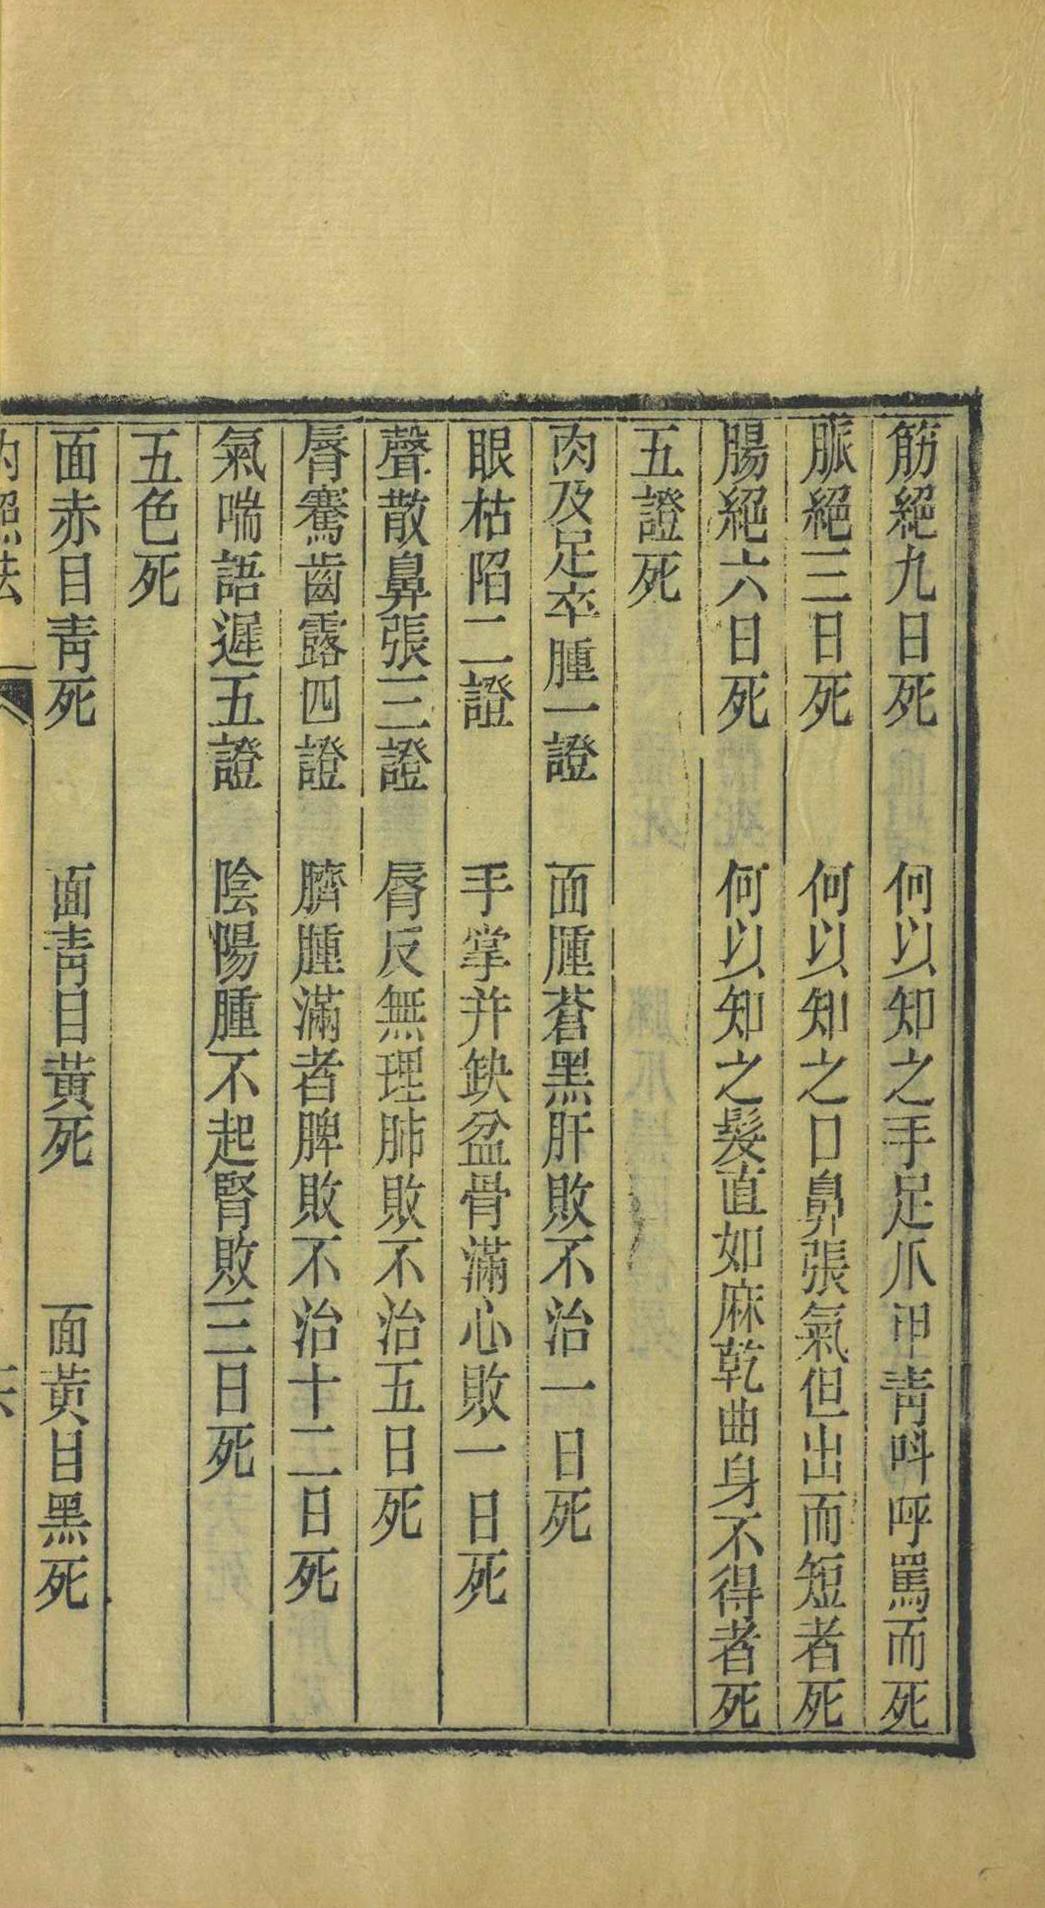 筋絕九日死　　何以知之手足爪甲青呌呼罵而死
脈絕三日死　　何以知之口鼻張氣但出而短者死
腸絕六日死　　何以知之髮直如麻乾曲身不得者死
五證死
肉及足卒腫一證　　面腫蒼黑肝敗不治一日死
眼枯陷二證　　手掌并缺盆骨滿心敗一日死
聲散鼻張三證　　脣反無理肺敗不治五日死
脣騫齒露四證　　臍腫滿者脾敗不治十二日死
氣喘語遲五證　　陰陽腫不起腎敗三日死
五色死
面赤目青死　　面青目黃死　　面黃目黑死
內照法